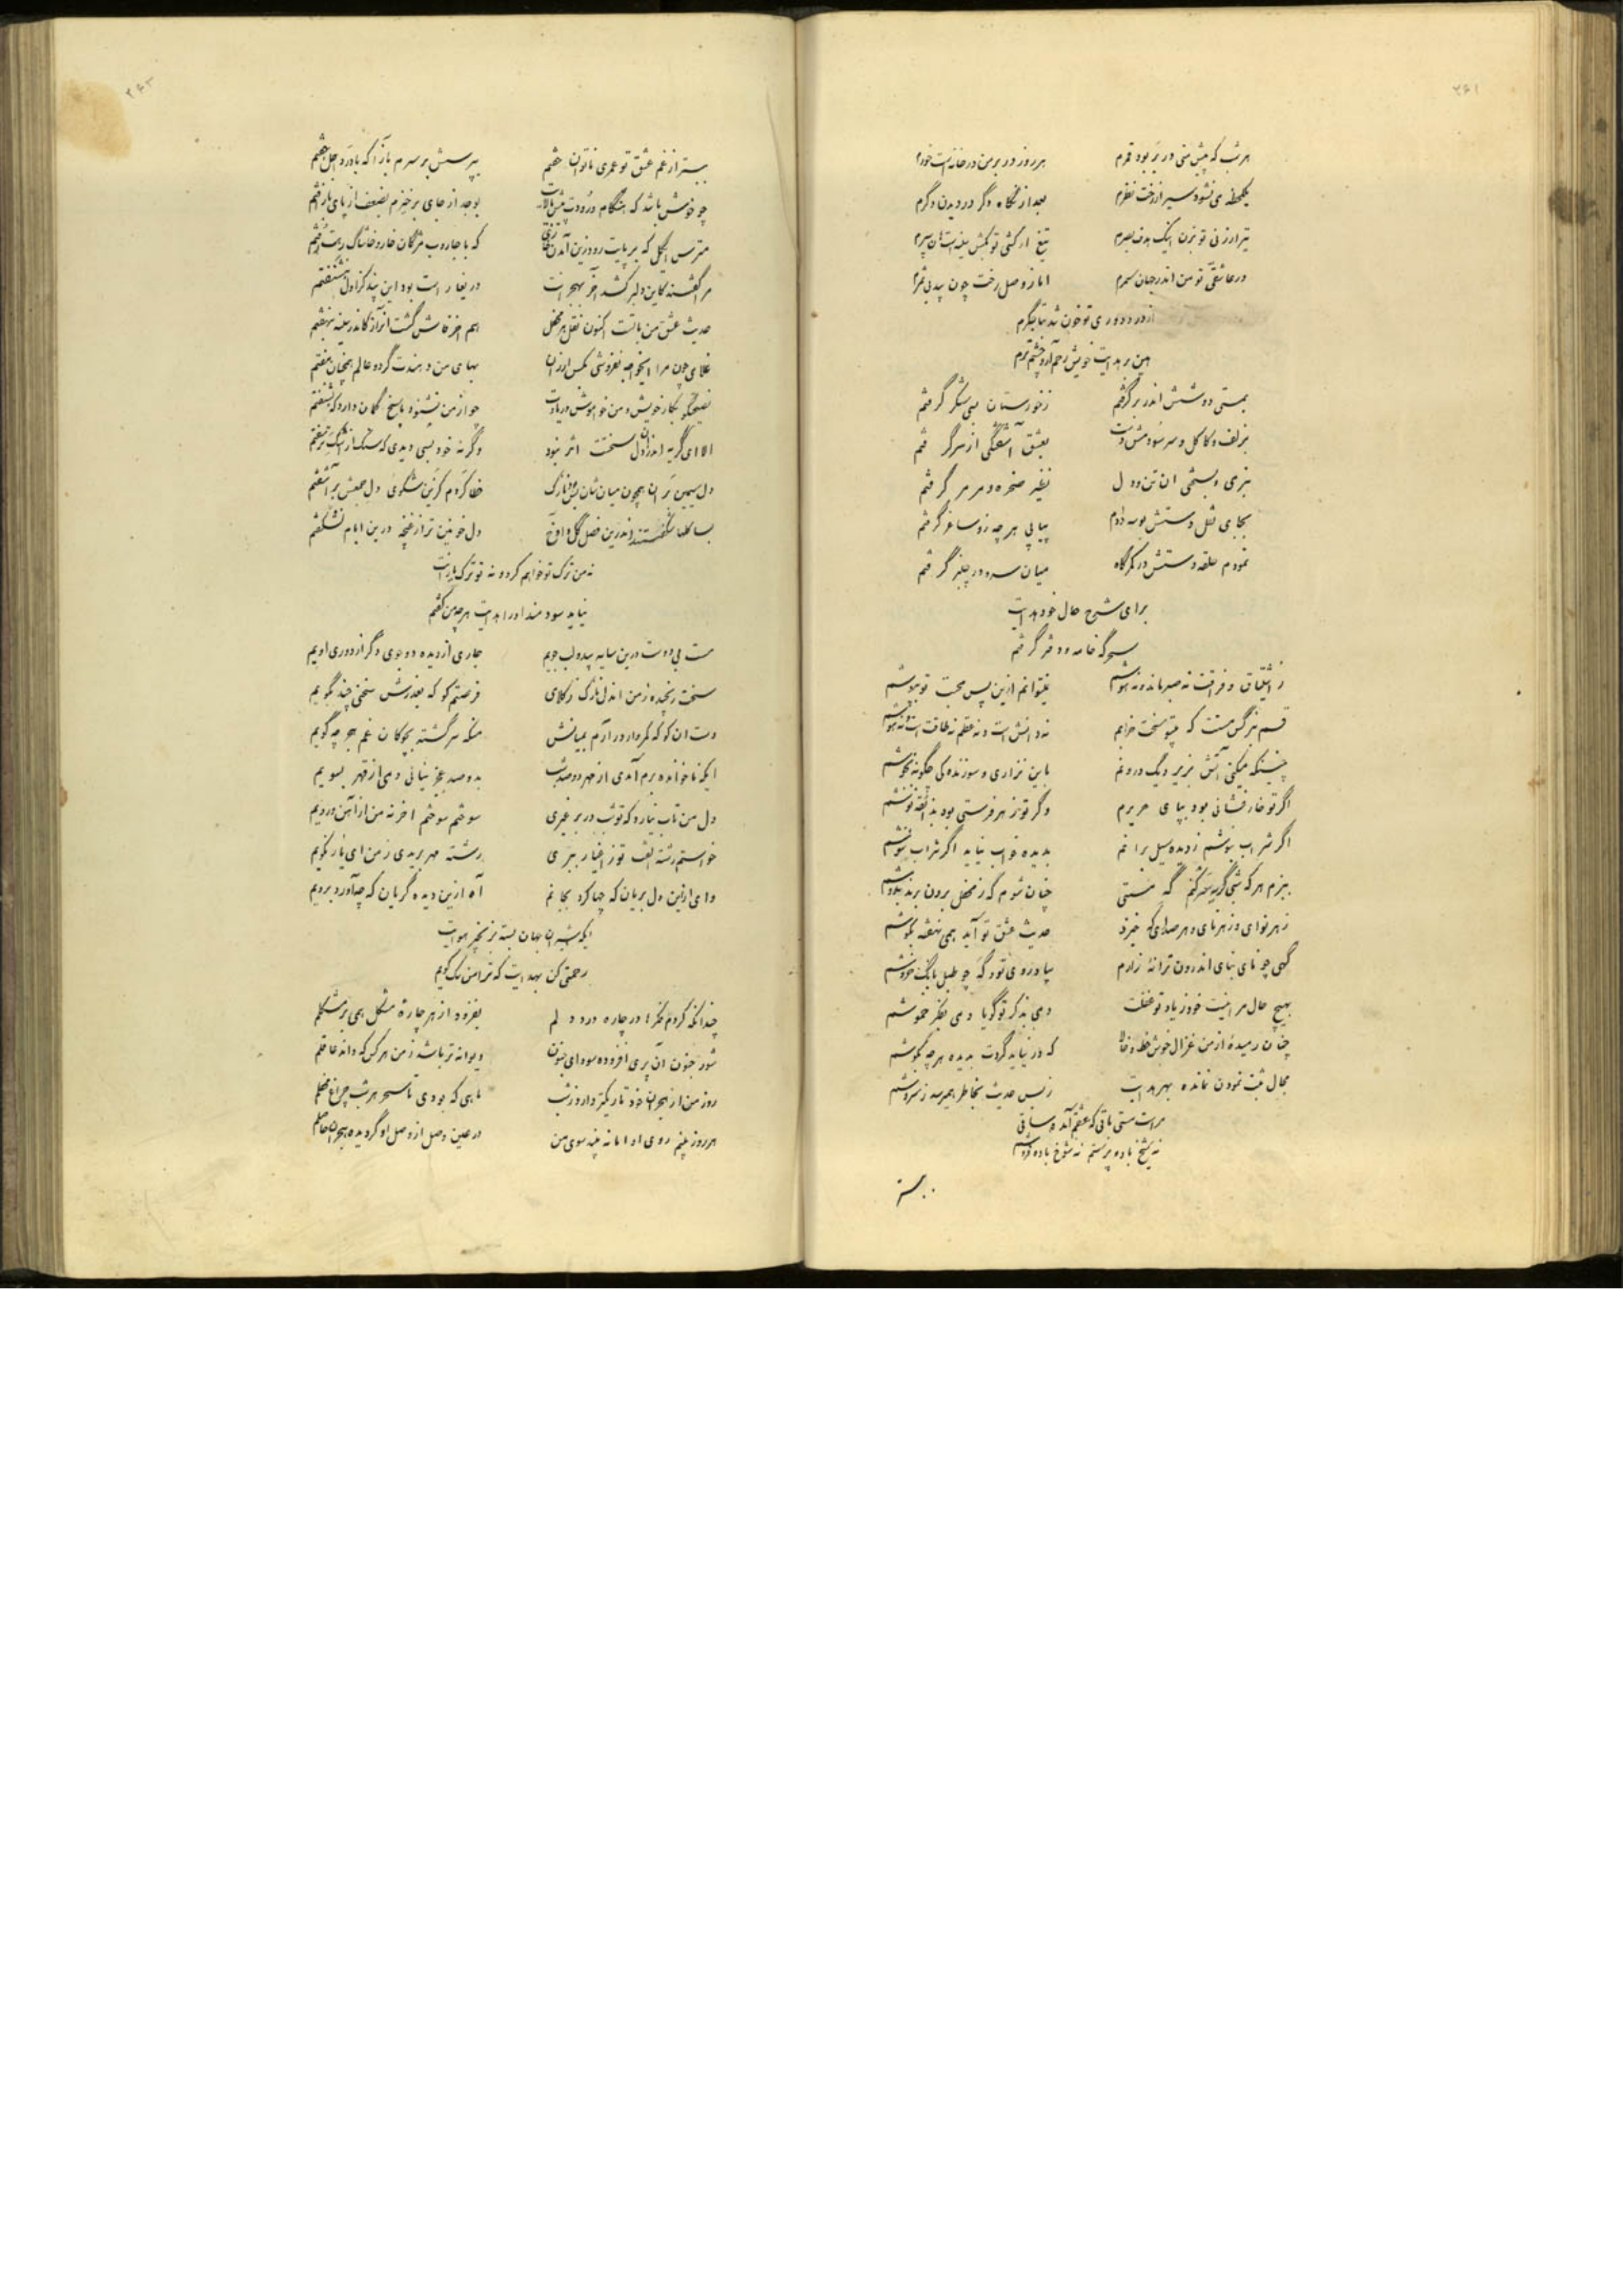 ۲۶۱
هر شب که پیش منی در بر بود قمرم هر روز در بر من در خانه است خورم
یکلحظه می نشود سیر از رخت نظرم بعد از نگاه دگر در دیدن دگرم
تیر ار زنی تو بزن اینک هدف بصرم تیغ ار کشی تو بکش سینه است سپرم
در عاشقی تو من اندر جهان سمرم اما ز وصل رخت چون بید بی ثمرم
از درد دوری تو خون شد جگرم
بمستی دوشش اندر بر گرفتم ز خوزستان بسی شکر گرفتم
بزلف و کاکل و سر سودمش دست بعشق آشفتگی از سر گرفتم
بنرمی و بسختی ان تن و دل نظیر صخره و مرمر گرفتم
بجای نقل دستش بوسه دادم پیاپی هر چه زو ساغر گرفتم
نمودم حلقه دستش در کمرگاه میان سرو در چنبر گرفتم
برای شرح حال خود هدایت
سحرگه خامه و دفتر گرفتم
ز اشتیاق و فراقت نه صبر مانده نه هوشم نیتوانم ازین پس محبت تو بپوشم
قسم بنرگس مستت که بیتو سخت خرابم نه دانش است و نه عقلم نه طاقت است و نه هوشم
چنینکه میکنی آتش بزیر دیگ درونم باین نزاری و سوزندگی چگونه نجوشم
اگر تو خار فشانی بود بپای حریرم وگر تو زهر فرستی بود بذائقه نوشم
اگر شراب بنوشم ز دیده سیل برانم بدیده خواب نیاید اگر شراب ننوشم
ببزم هر که شبی گریه سر کنم گه مستی چنان شوم که ز محفل برون برند بدوشم
ز هر نوای و ز هر نای و هر صدای که خیزد حدیث عشق تو آید همی نهفته بگوشم
گهی چو نای بنای اندرون ترانه زارم بیاد روی تو و گه چو طبل بانگ خروشم
بهیچ حال مرا نیست خود ز یاد تو غفلت دمی بذکر تو گویا دمی بفکر خموشم
چنان رمیده از من غزال خوش خط و خالا که در نیاید گردت بدیده هر چه بکوشم
مجال ثبت نمودن نمانده بهر هدایت ز بس حدیث بخاطر همیرسد ز سروشم
مراست مستی باقی که عشقم آمده ساقی
نه شیخ باده پرستم نه شوخ باده فروشم
بستر
بستر از غم عشق تو عمری ناتوان خفتم بپرسش بر سرم بازآ که با درد اجل جفتم
چو خوش باشد که هنگام درودت پیش بالایت بوجد از جای برخیزم بضعف از پای باز افتم
مترس ایگل که بر پایت رود زین آمدن خاری که با جاروب مژگان خار و خاشاک رهت رفتم
مرا گفتند کاین دلبر کشد آخر بهجرانت دریغا راست بود این پند کز اول بنشنفتم
حدیث عشق من با تست اکنون نقل هر محفل هم اخر فاش گشت آنراز کاندر سینه بنهفتم
غلامی چون مرا ایخواجه نفروشی بکس ارزان بهای من دهندت گر دو عالم همچنان مفتم
نصیحتگو بکار خویش و من خوابوش در یادت چو از من نشنود پاسخ گمان دارد که بشنفتم
الا ای گریه اندر ان دل سختت اثر نبود وگرنه خود بسی دیدی که سنگ از اشک تر سفتم
دل سیمین بران همچون میان شان بس بود نازک خطا کردم کزین شکوی دل جمعش برآشفتم
بسا گلها شکفتستند اندرین فصل گل و آوخ دل خونین تر از غنچه درین ایام نشکفتم
نه من ترک تو خواهم کرد و نه تو ترک
نیاید سودمند او را هدایت هر چه من گفتم
مست بی دوست درین سایه بید و لب جویم جاری از دیده دو جوی دگر از دوری اویم
سخت رنجیده ز من اندل نازک ز کلامی فرصتم کو که بعذرش سخنی چند بگویم
دست ان کو که کمروار در آرم بمیانش منکه سرگشته بچوکان غم هجر چه گویم
ایکه ناخوانده برم آمدی از مهر دو صد شب بدو صد عجز نیائی دمی از قهر بسویم
دل من تاب نیارد که تو شب در بر غیری سوختم سوختم اخر نه من از آهن و رویم
خواستم رشته الفت تو ز اغیار ببری رشته مهر بریدی ز من ای یار نکویم
وای ازین دل بریان که چها کرد بجانم آه ازین دیده گریان که چه آورد برویم
ایکه شیران جهان بسته بزنجیر هوایت
رحمتی کن بهدایت که ترا من سگ کویم
چندانکه کردم فکرها در چاره درد دلم بفزود از هر چاره مشکل همی بر مشکلم
شور جنون آن پری افزوده سودای جنون دیوانه تر باشد ز من هر کس که داند عاقلم
روز من از هجران خود تاریکتر دارد ز شب ماهی که بودی تا سحر هر شب چراغ محفلم
هر روز بینم روی او اما نه بیند سوی من در عین وصل از وصل او گردیده هجران حاصلم